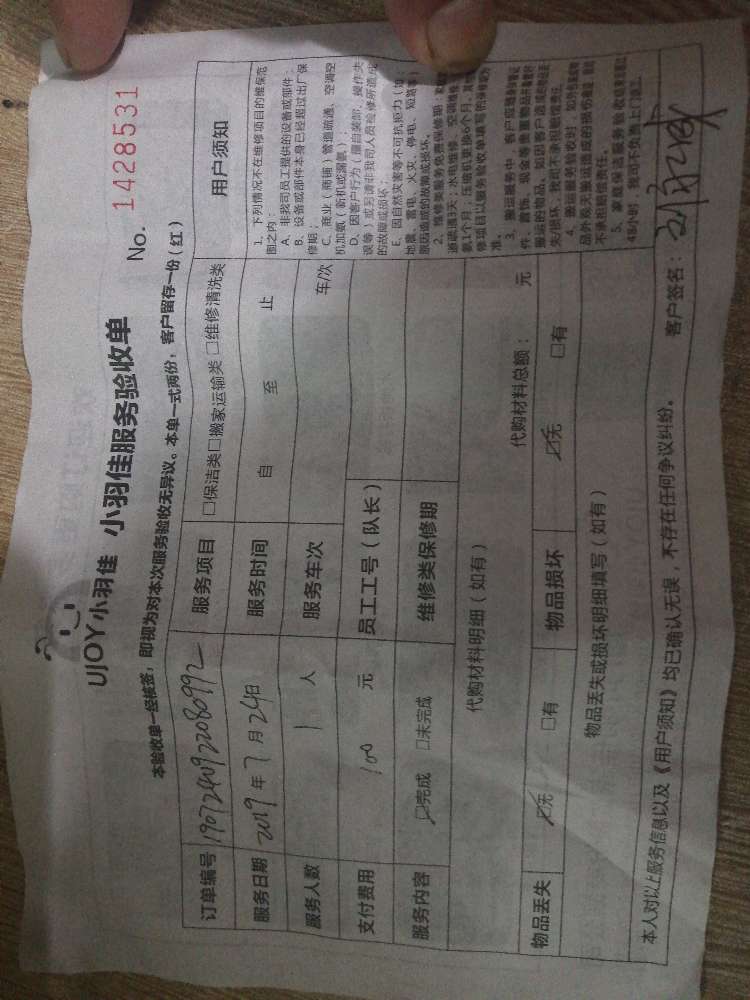 UJOY小羽佳 小羽佳服务验收单
No. 1428531
本验收单一经核签，即视为对本次服务验收无异议。本单一式两份，客户留存一份（红）
订单编号 1907240922080992 服务项目 □保洁类□搬家运输类 □维修清洗类
服务日期 2019年7月24日 服务时间 自 至 止
服务人数 1 人 服务车次 车/次
支付费用 100 元 员工工号（队长）
服务内容 ☑完成 □未完成 维修类保修期
代购材料明细（如有） 代购材料总额： 元
物品丢失 ☑无 □有 物品损坏 ☑无 □有
物品丢失或损坏明细填写（如有）
用户须知
1、下列情况不在维修项目的维保范
围之内：
A、非我司员工提供的设备或部件；
B、设备或部件本身已经超过出厂保
修期；
C、商业（商铺）管道疏通、空调空
机加氨（新机或漏氨）；
D、因客户行为（擅自装卸、操作失
误等）或另请非我司人员检修所造成
的故障或损坏；
E、因自然灾害等不可抗拒力（如
地震、雷电、火灾、停电、短路等）
原因造成的故障或损坏。
2、维修类服务免费保修期：
修项目以服务验收单填写的
准。
3、搬运服务中，客户应
件、首饰、现金等贵重物品
搬运的物品，如因客户
失/损坏，我司不承担赔偿责任。
4、搬运服务验收时，
品外观无搬运造成的损伤
不承担赔偿责任。
5、家庭保洁服务验收
48小时，我司不负责上门返工。
本人对以上服务信息以及《用户须知》均已确认无误，不存在任何争议纠纷。 客户签名：